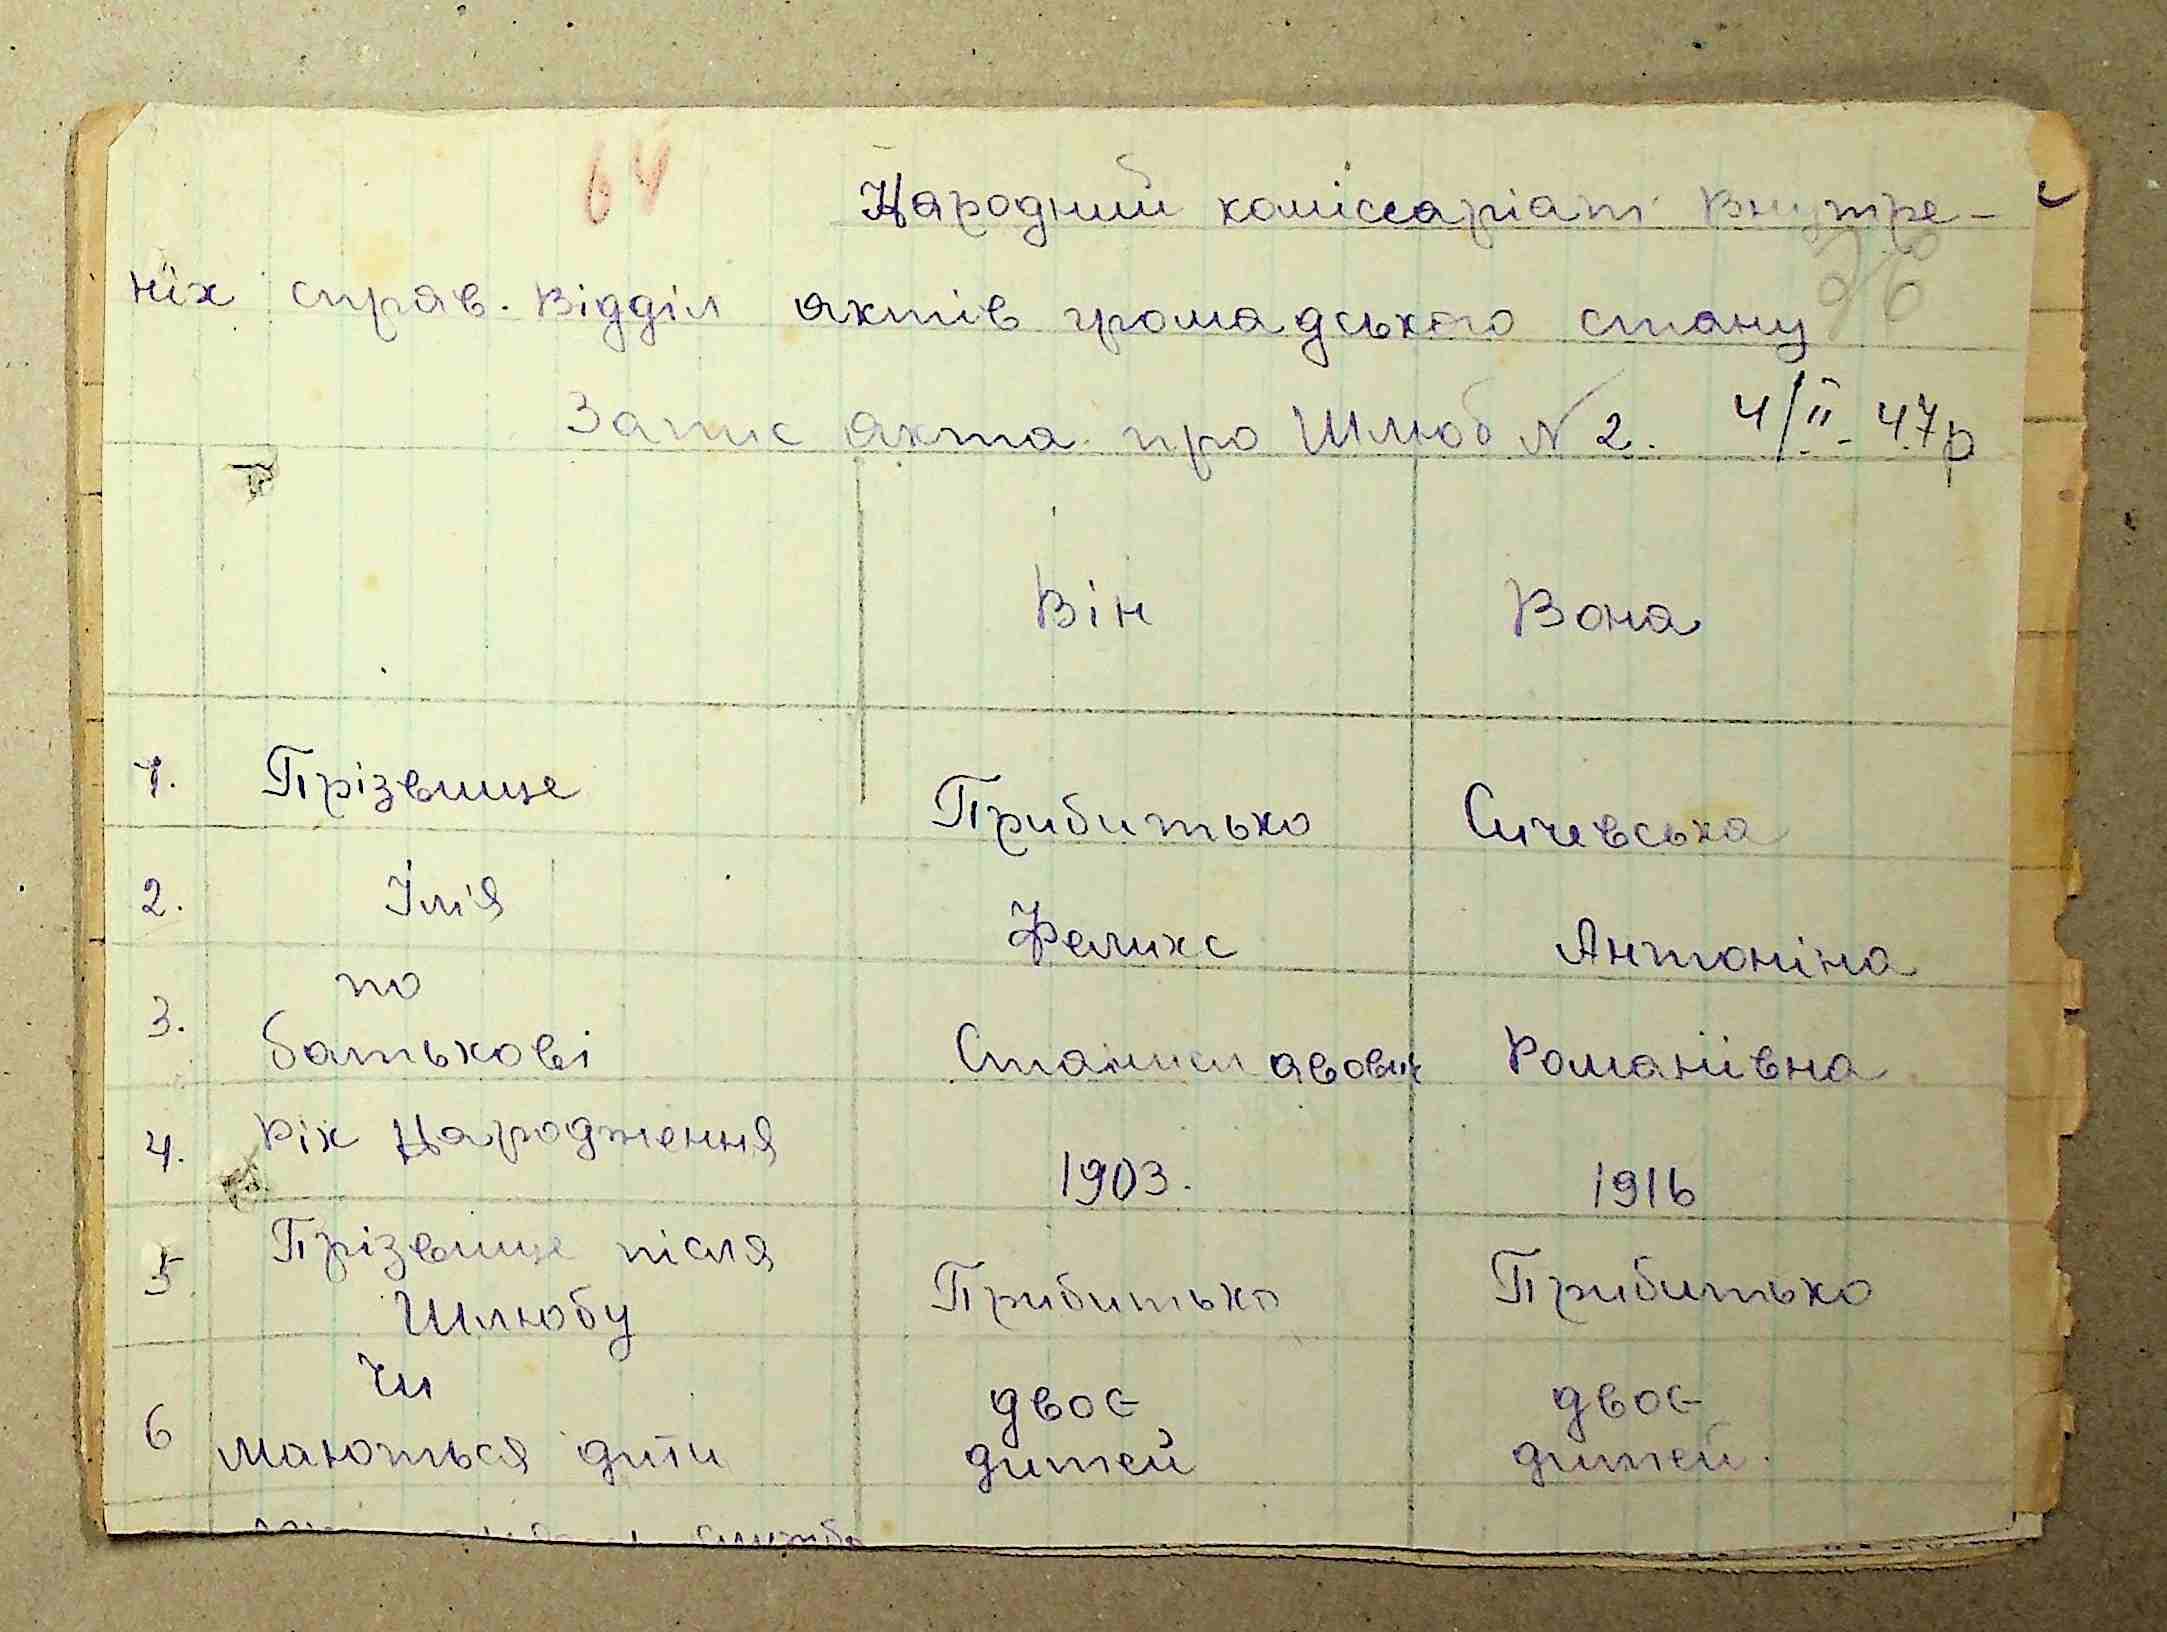 64
Народний коміссаріат Внутре-
ніх справ. Відділ актів громадського стану
Запис акта про Шлюб N 2. 4/II-47р
Він Вона
1. Прізвище Прибитько Сичевська
2. Імія Феликс Антоніна
3. по батькові Станиславович Романівна
4. Рік Народження 1903. 1916
5 Прізвище після Шлюбу Прибитько Прибитько
6 Чи маються дити двоє дитей двоє дитей.
служба